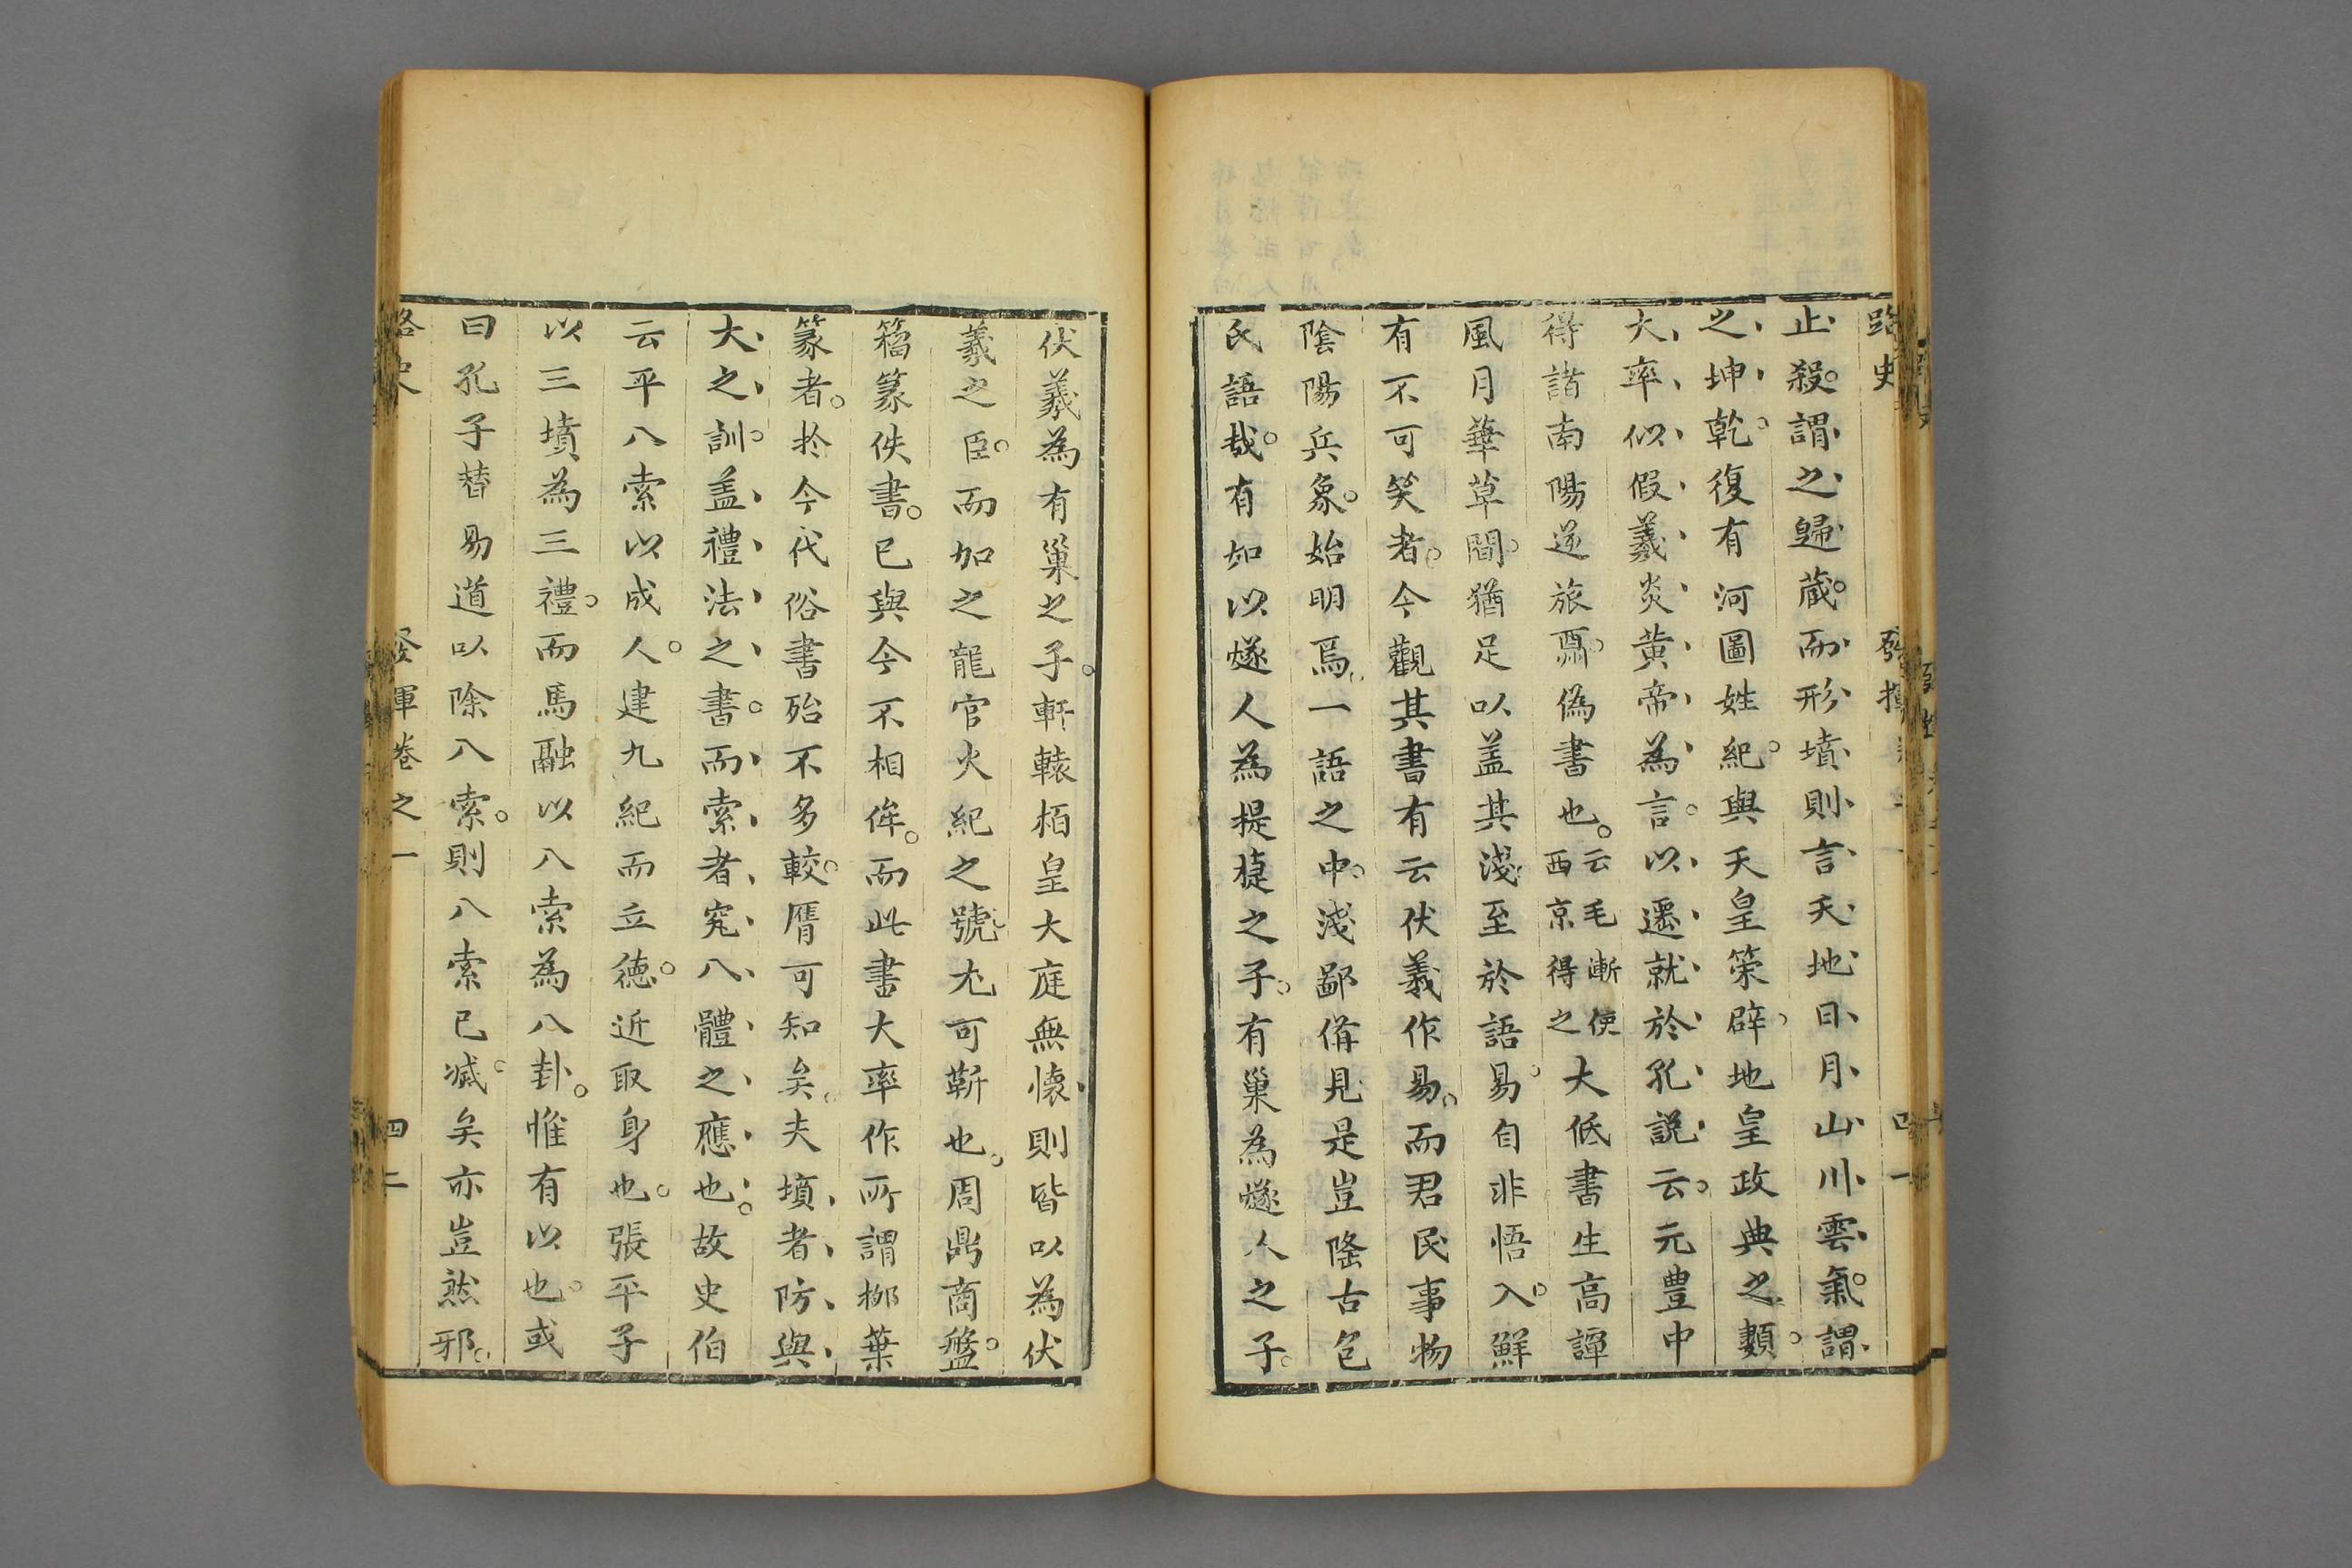 路史
止殺謂之歸蔵而形墳則言天地日月山川雲氣謂
之坤乾復有河圖姓紀與天皇策辟地皇政典之類
大率似假羲炎黄帝為言以遷就於孔説云元豊中
得諸南陽逆旅爲偽書也云毛漸使西京得之大低書生高譚
風月華草間猶足以盖其淺至於語易自非悟入鮮
有不可笑者今觀其書有云伏羲作易而君民事物
陰陽兵象始明焉一語之中淺鄙俻見是豈隆古包
氏語哉有如以燧人為提㨗之子有巢為燧人之子
伏羲為有巢之子軒轅栢皇大庭無懐則皆以為伏
羲之臣而加之龍官火紀之號尤可蘄也周鼎商盤
籀篆佚書已與今不相侔而此書大率作所謂栁葉
篆者扵今代俗書殆不多較贋可知矣夫墳者防與
大之訓盖禮法之書而索者究八體之應也故史伯
云平八索以成人建九紀而立德近取身也張平子
以三墳為三禮而馬融以八索為八卦惟有以也或
曰孔子替易道以除八索則八索已滅矣亦豈然邪
路史
發揮卷之一
四二